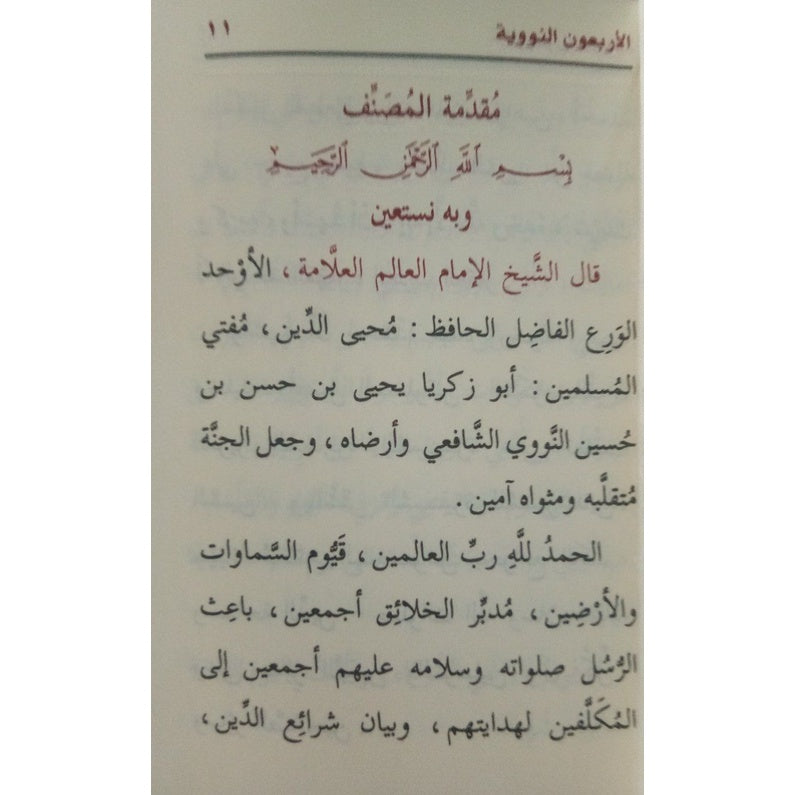 الأربعون النووية ١١
مُقدِّمة المُصَنِّف
بِسْمِ اللَّهِ الرَّحْمَٰنِ الرَّحِيمِ
وبه نستعين
قال الشَّيخ الإمام العالم العلَّامة ، الأوْحد
الوَرِع الفاضِل الحافظ : مُحيى الدِّين ، مُفتي
المُسلمين : أبو زكريا يحيى بن حسن بن
حُسين النَّووي الشَّافعي وأرضاه ، وجعل الجنَّة
مُتقلَّبه ومثواه آمين .
الحمدُ للَّهِ ربِّ العالمين ، قَيُّوم السَّماوات
والأرْضِين ، مُدبِّر الخلائِق أجمعين ، باعِث
الرُّسُل صلواته وسلامه عليهم أجمعين إلى
المُكَلَّفين لهدايتهم ، وبيان شرائِع الدِّين ،